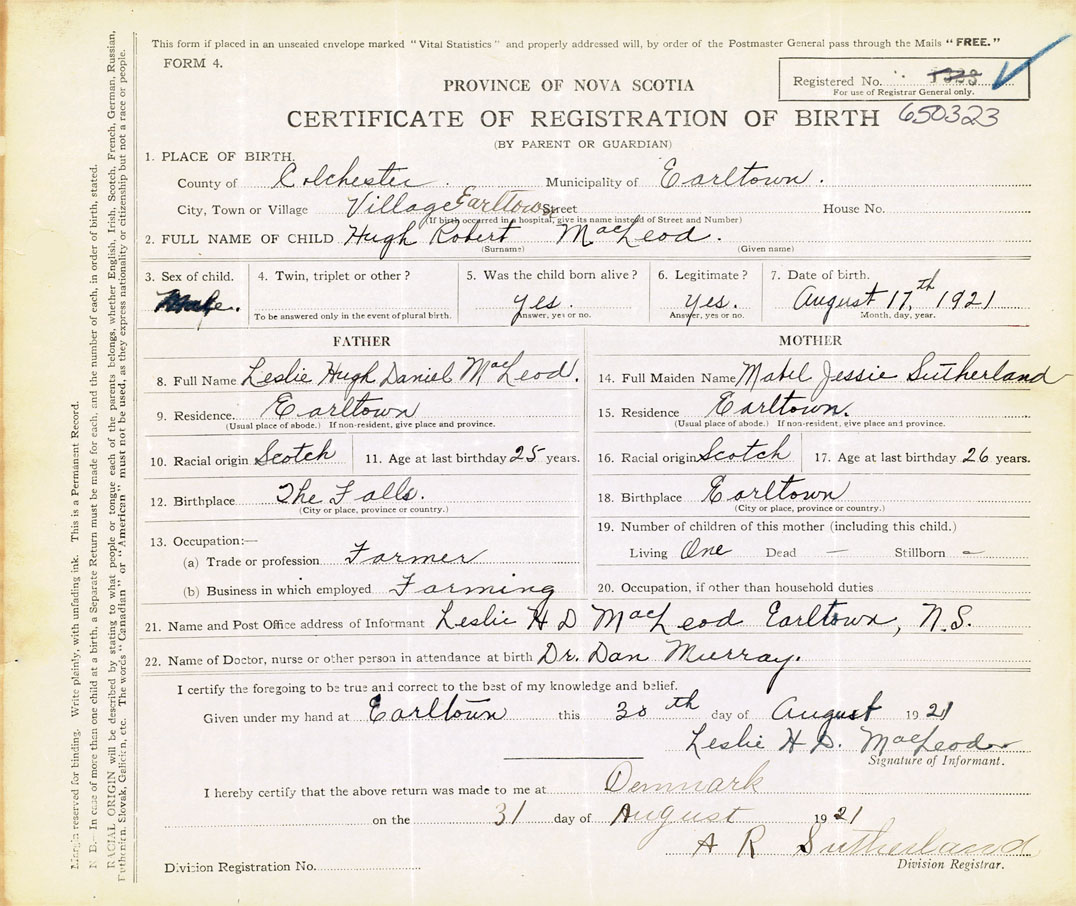 This form if placed in an unsealed envelope marked "Vital Statistics" and properly addressed will, by order of the Postmaster General pass through the Mails "FREE."
FORM 4.
Registered No.
For use of Registrar General only.
PROVINCE OF NOVA SCOTIA
CERTIFICATE OF REGISTRATION OF BIRTH 650323
(BY PARENT OR GUARDIAN)
1. PLACE OF BIRTH.
County of Colchester. Municipality of Earltown.
City, Town or Village Village Earltown Street House No.
(If birth occurred in a hospital, give its name instead of Street and Number)
2. FULL NAME OF CHILD Hugh Robert MacLeod.
(Surname) (Given name)
3. Sex of child. 4. Twin, triplet or other? 5. Was the child born alive? 6. Legitimate? 7. Date of birth.
Male. yes. yes. August 17th, 1921
To be answered only in the event of plural birth. Answer, yes or no. Answer, yes or no. Month, day, year.
FATHER MOTHER
8. Full Name Leslie Hugh Daniel MacLeod. 14. Full Maiden Name Mabel Jessie Sutherland
9. Residence. Earltown 15. Residence Earltown.
(Usual place of abode.) If non-resident, give place and province. (Usual place of abode.) If non-resident, give place and province.
10. Racial origin Scotch 11. Age at last birthday 25 years. 16. Racial origin Scotch 17. Age at last birthday 26 years.
12. Birthplace The Falls. 18. Birthplace Earltown
(City or place, province or country.) (City or place, province or country.)
19. Number of children of this mother (including this child.)
13. Occupation:—
(a) Trade or profession Farmer Living One Dead — Stillborn -
(b) Business in which employed Farming 20. Occupation, if other than household duties
21. Name and Post Office address of Informant Leslie H D MacLeod Earltown, N.S.
22. Name of Doctor, nurse or other person in attendance at birth Dr. Dan Murray.
I certify the foregoing to be true and correct to the best of my knowledge and belief.
Given under my hand at Earltown this 30th day of August 1921
Leslie H D. MacLeod
Signature of Informant.
I hereby certify that the above return was made to me at Denmark
on the 31 day of August 1921
A R Sutherland
Division Registrar.
Division Registration No.
Margin reserved for binding. Write plainly, with unfading ink. This is a Permanent Record.
N. B.—In case of more than one child at a birth, a Separate Return must be made for each, and the number of each, in order of birth, stated.
RACIAL ORIGIN will be described by stating to what people or tongue each of the parents belongs, whether English, Irish, Scotch, French, German, Russian,
Ruthenian, Slovak, Galician, etc. The words "Canadian" or "American" must not be used, as they express nationality or citizenship but not a race or people.